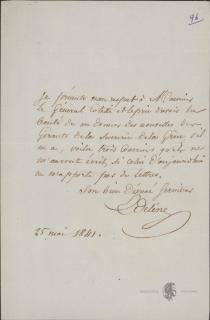 96
Je présente mon respect à Monsieur
le Général Coletti et le prie d'avoir la
bonté de me donner des nouvelles des
Gérants de la de la Grèce, s'il
en a, voilà trois Courriers qu'ils ne
m'auront écrit, si celui d'aujourd'hui
ne m'apporte pas de lettres.
Son bien dévoué serviteur
25 mai 1841.